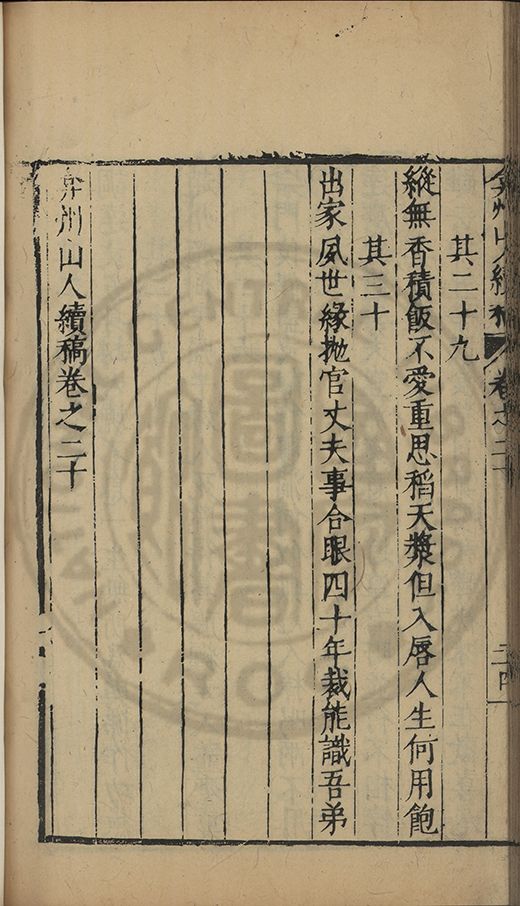 弇州山人續稿 卷之二十 二十四
其二十九
縱無香積飯不愛重思稻天漿但入唇人生何用飽
其三十
出家夙世緣拋官丈夫事合眼四十年裁能識吾弟
弇州山人續稿卷之二十